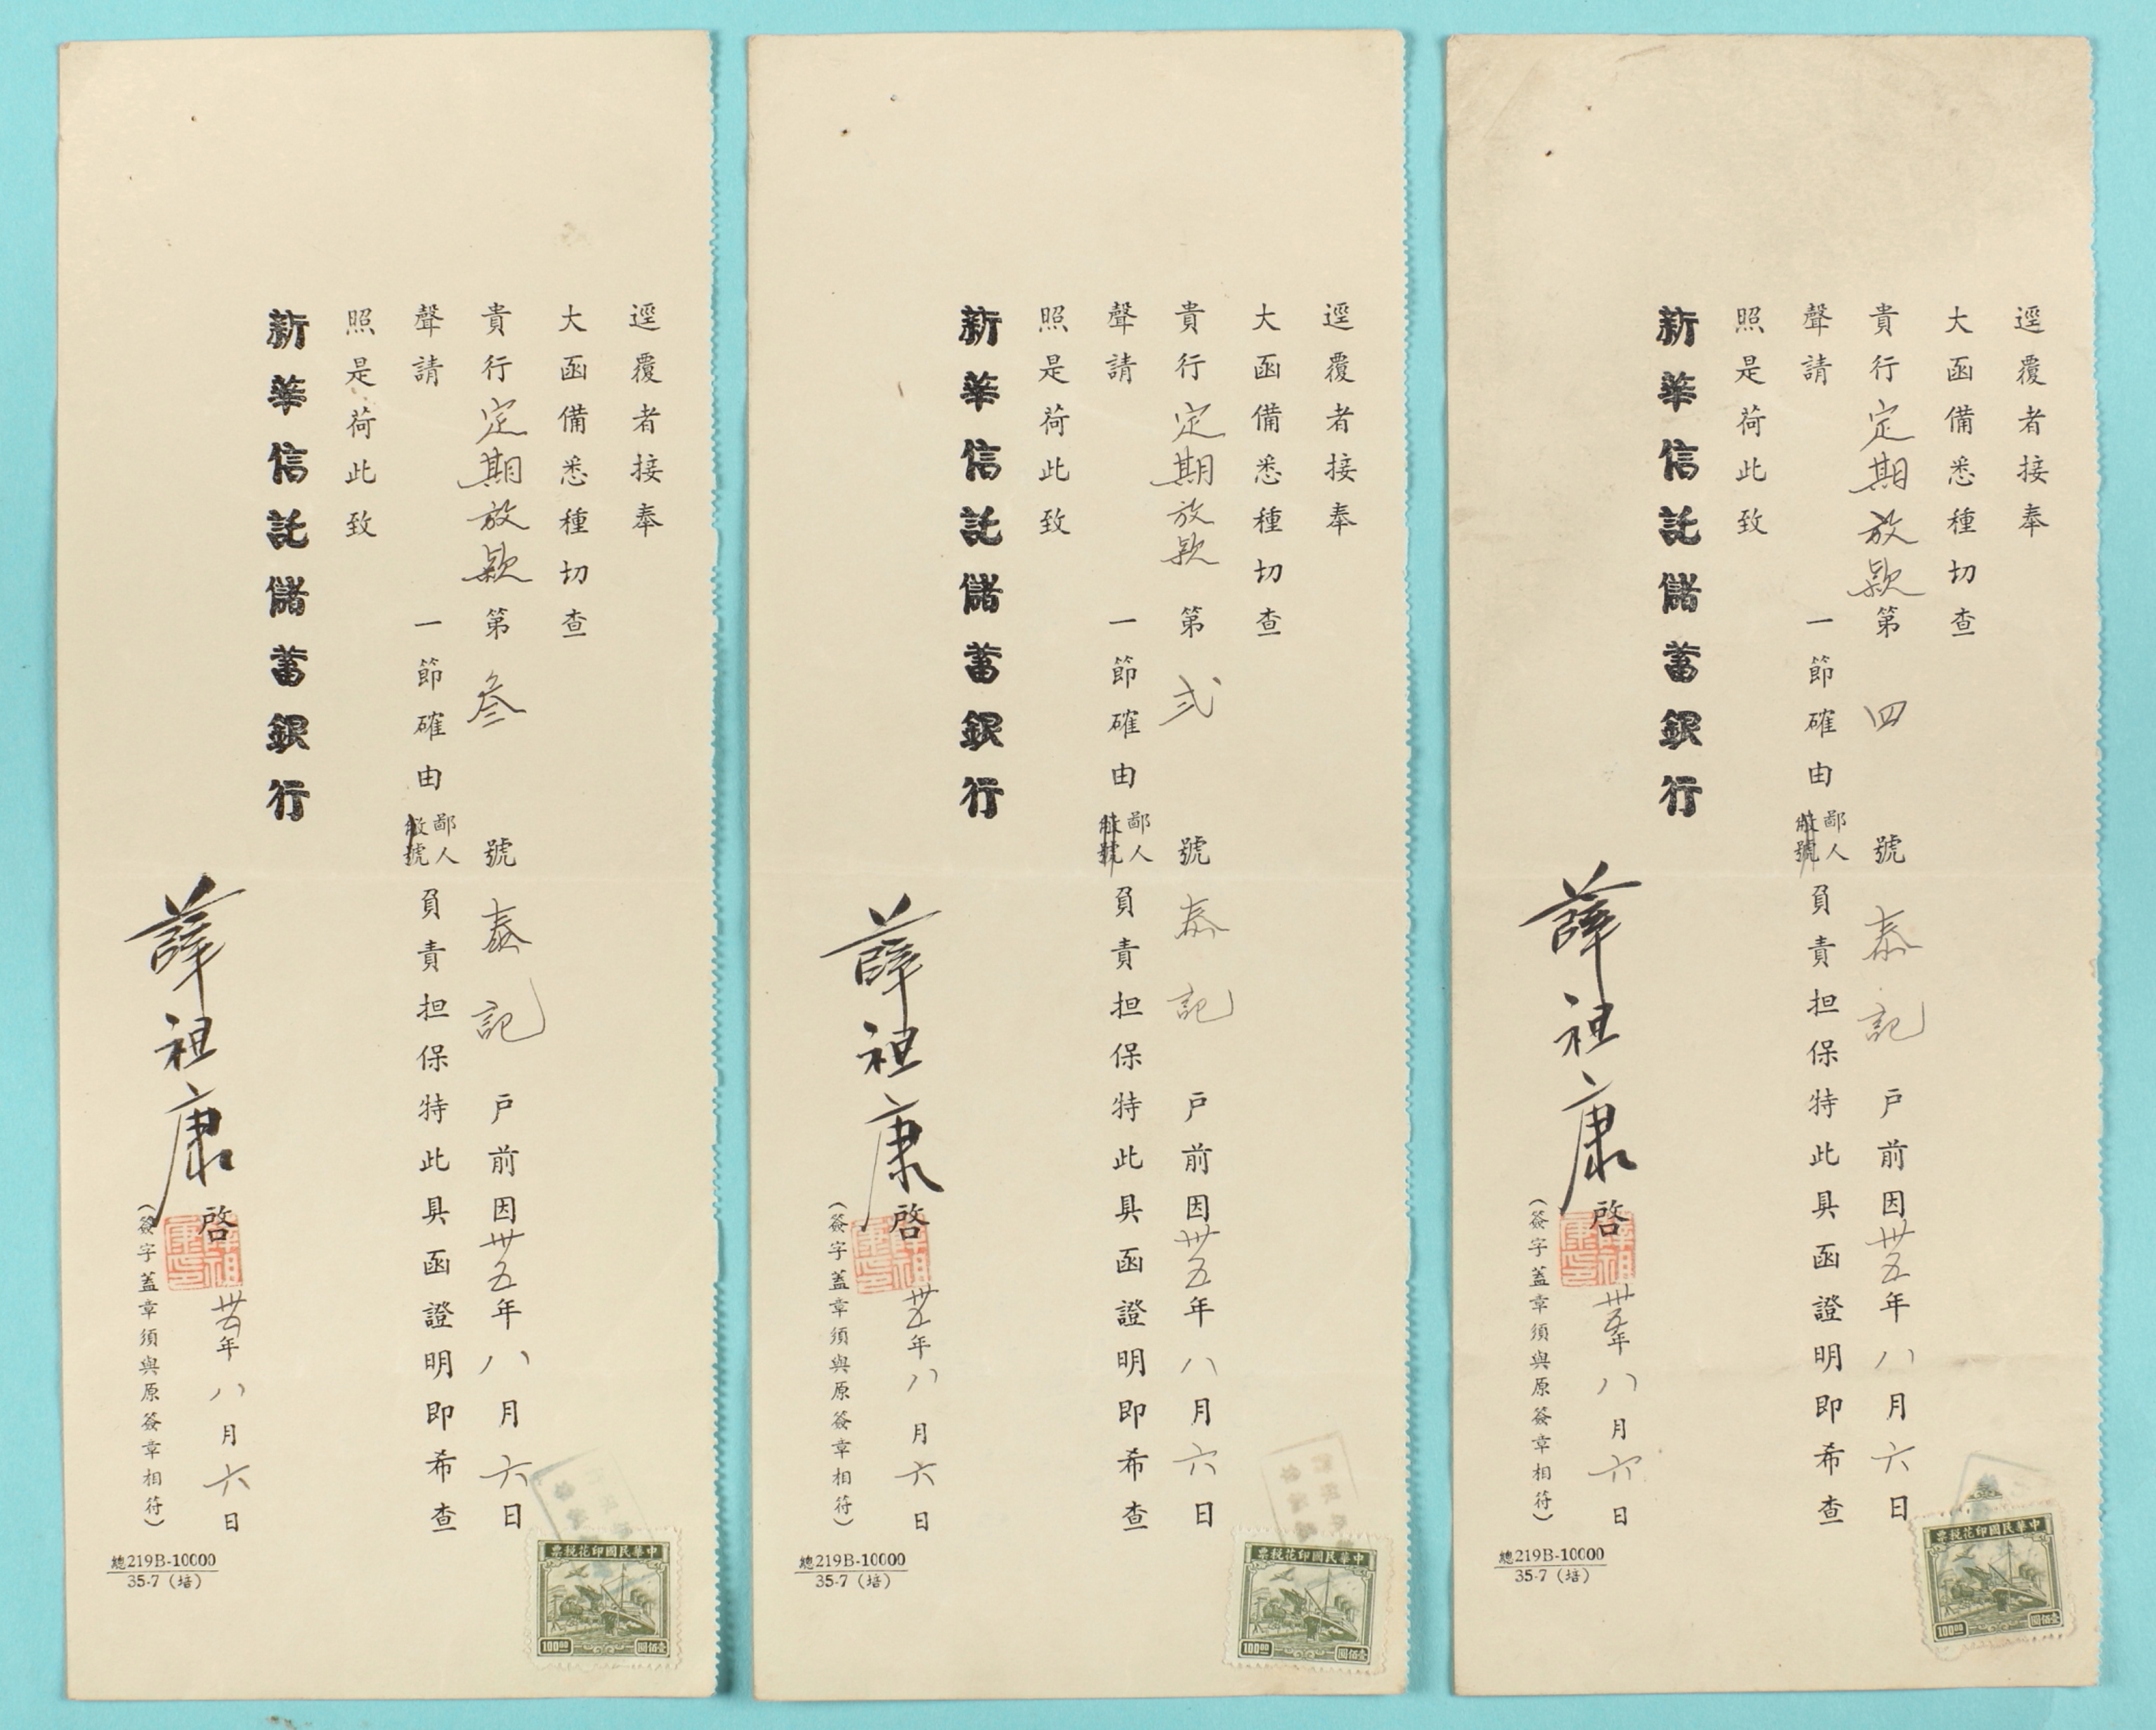 逕覆者接奉
大函備悉種切查
貴行定期放款第叁號泰記戶前因卅五年八月六日
聲請一節確由鄙人敝號負責担保特此具函證明即希查
照是荷此致
新華信託儲蓄銀行
薛祖康啓
薛祖康印
卅五年八月六日
(簽字蓋章須與原簽章相符)
總219B-10000
35-7(培)
中華民國印花税票
100.00 壹佰圓
逕覆者接奉
大函備悉種切查
貴行定期放款第弍號泰記戶前因卅五年八月六日
聲請一節確由鄙人敝號負責担保特此具函證明即希查
照是荷此致
新華信託儲蓄銀行
薛祖康啓
薛祖康印
卅五年八月六日
(簽字蓋章須與原簽章相符)
總219B-10000
35-7(培)
中華民國印花税票
100.00 壹佰圓
逕覆者接奉
大函備悉種切查
貴行定期放款第四號泰記戶前因卅五年八月六日
聲請一節確由鄙人敝號負責担保特此具函證明即希查
照是荷此致
新華信託儲蓄銀行
薛祖康啓
薛祖康印
卅五年八月六日
(簽字蓋章須與原簽章相符)
總219B-10000
35-7(培)
中華民國印花税票
100.00 壹佰圓